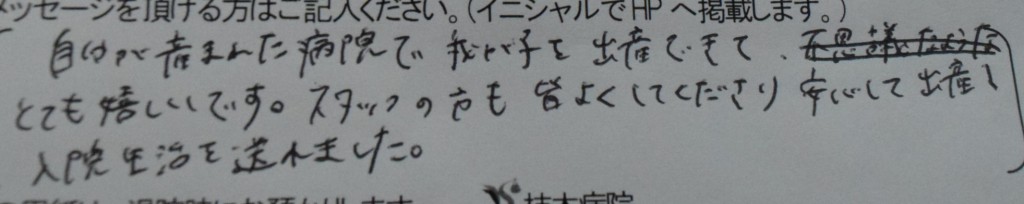 メッセージを頂ける方はご記入ください。(イニシャルでHPへ掲載します。)
自分が産まれた病院で我が子を出産できて、
とても嬉しいです。スタッフの方も皆よくしてくださり安心して出産し
入院生活を送れました。